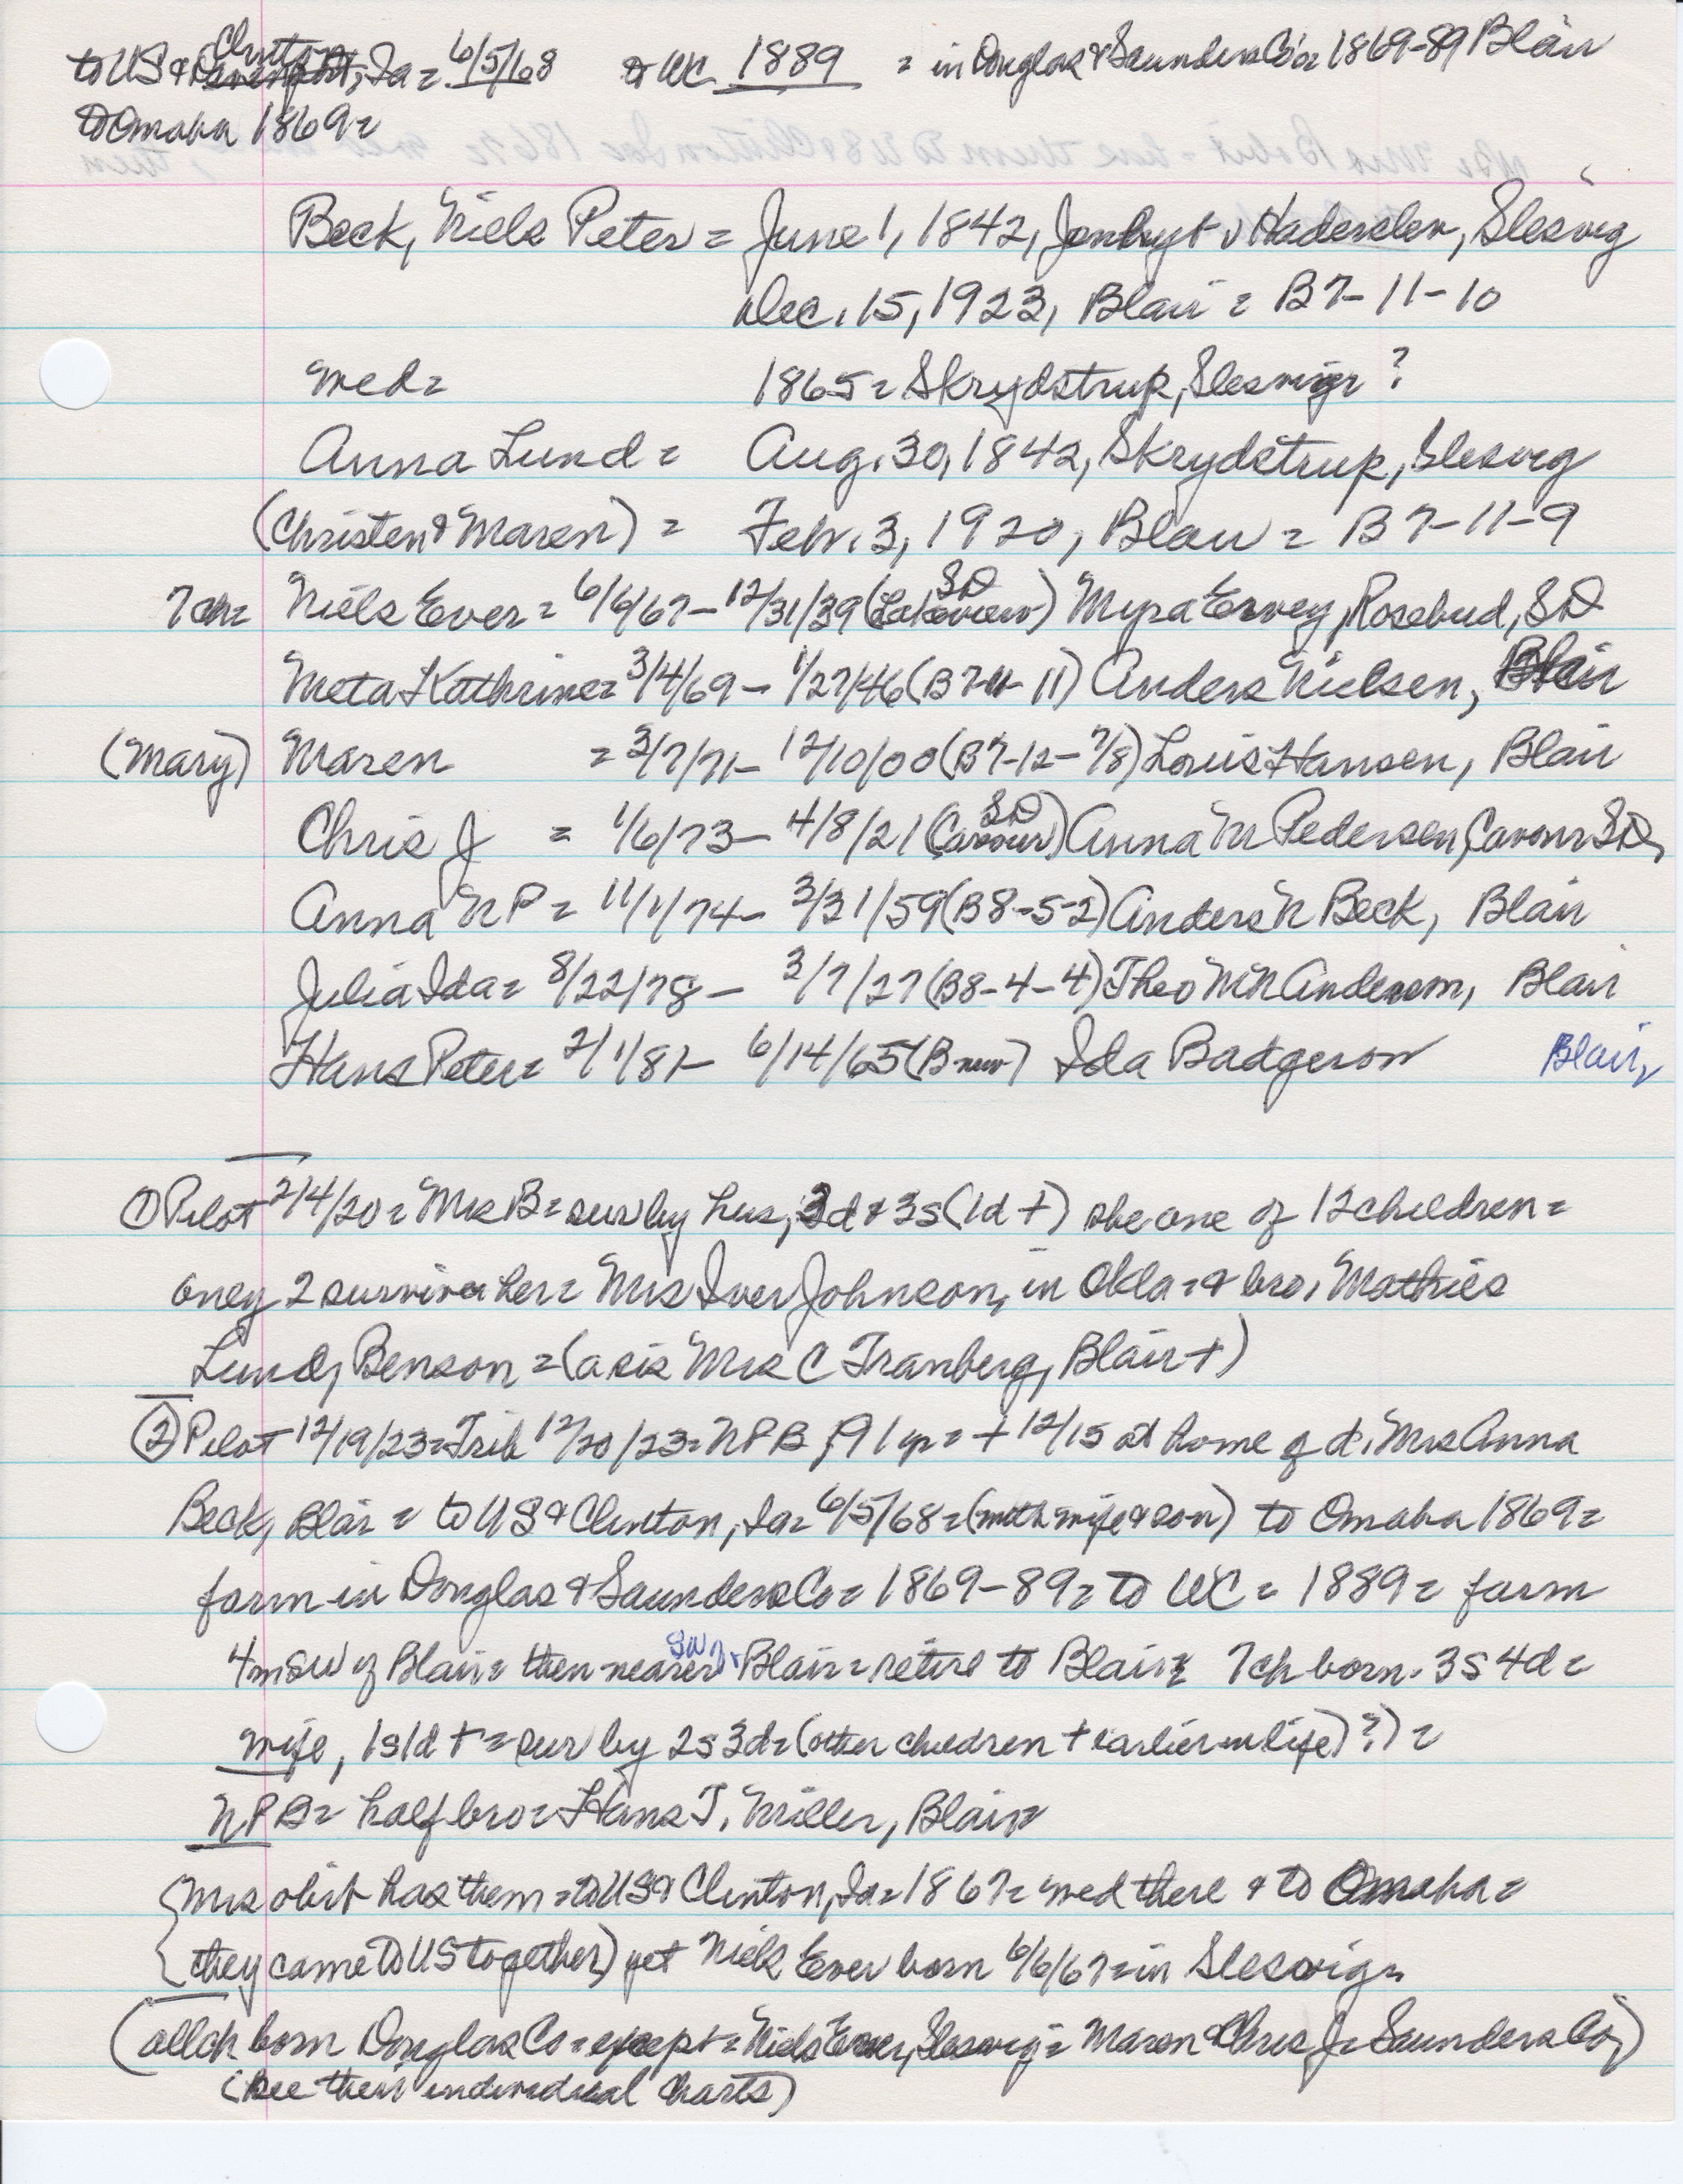 to US & Clinton, Ia = 6/5/68 to WC 1889 = in Douglas & Saunders Co's 1869-89 Blair
to Omaha 1869 =
Beck, Niels Peter = June 1, 1842, v Haderslev, Slesvig
Dec. 15, 1923, Blair = B7-11-10
med = 1865 = Skrydstrup, Slesvig ?
Anna Lund = Aug. 30, 1842, Skrydstrup, Slesvig
(Christen & Maren) = Feb. 3, 1920, Blair = B7-11-9
7 ch = Niels Ever = 6/6/67 - 12/31/39 (Lakeview SD) Myra Ervey, Rosebud, SD
Meta Kathrine = 3/4/69 - 1/27/46 (B7-11-11) Anders Nielsen, Blair
(Mary) Maren = 3/7/71 - 12/10/00 (B7-12-7/8) Louis Hansen, Blair
Chris J = 1/6/73 - 4/8/21 (Cavour SD) Anna M Pedersen, Cavour SD,
Anna N P = 11/1/74 - 3/31/59 (B8-5-2) Anders N Beck, Blair
Julia Ida = 8/22/78 - 3/7/27 (B8-4-4) Theo Anderson, Blair
Hans Peter = 2/1/81 - 6/14/65 (B new) Ida Badgerow Blair,
① Pilot 2/4/20 = Mrs B = sur by hus, 3d & 3s (1d +) she one of 12 children =
only 2 survive her = Mrs Iver Johnson, in Okla = & bro, Mathies
Lund, Benson = (a sis Mrs C Tranberg, Blair +)
② Pilot 12/19/23 = Trib 12/20/23 = NPB, 91 yr = + 12/15 at home of d. Mrs Anna
Beck, Blair = to US & Clinton, Ia = 6/5/68 = (with wife & son) to Omaha 1869 =
farm in Douglas & Saunders Co = 1869-89 = to WC = 1889 = farm
4m SW of Blair = then nearer SW Blair = retire to Blair = 7 ch born. 3s 4d =
wife, 1s 1d + = sur by 2s 3d = (other children + earlier in life) ?) =
NPB = half bro = Hans T. Miller, Blair =
{ Mrs obit has them = to US & Clinton, Ia = 1867 = med there & to Omaha =
{ they came to US together) yet Niels Ever born 6/6/67 = in Slesvig =
(all ch born Douglas Co = except = Niels Ever, Slesvig = Maren & Chris J = Saunders Co,)
(see their individual charts)